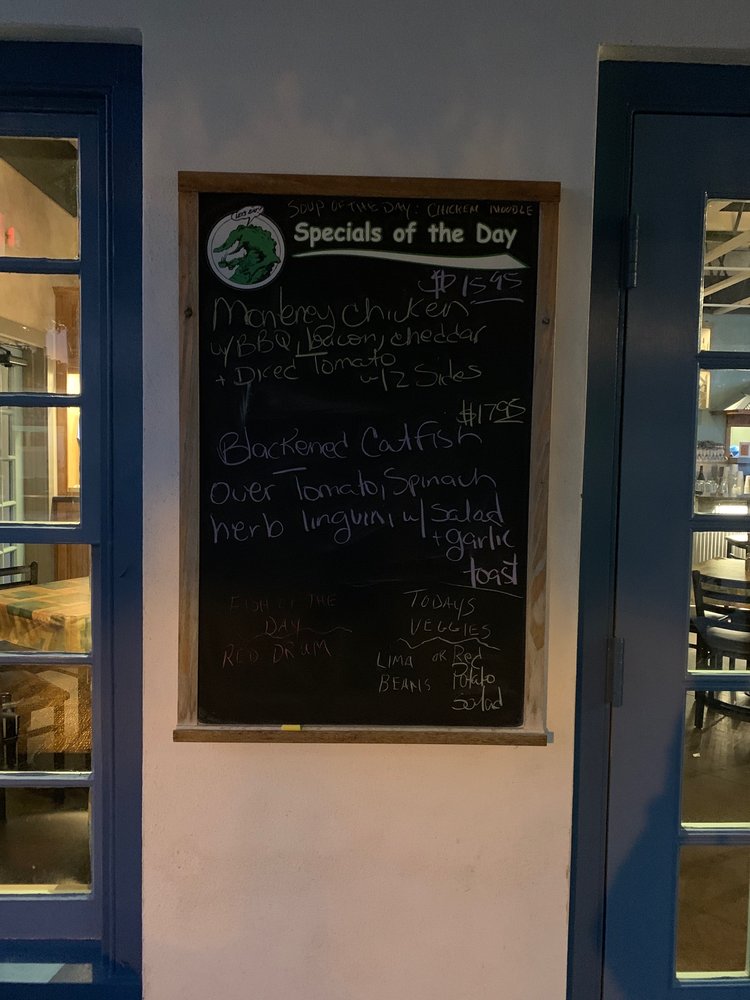 SOUP OF THE DAY: CHICKEN NOODLE
LET'S EAT!
Specials of the Day
$15.95
Monterey Chicken
w/BBQ, bacon, cheddar
+ Diced Tomato
w/2 Sides
$17.95
Blackened Catfish
over Tomato, Spinach
herb linguini w/ Salad
+ garlic
toast
FISH OF THE
DAY
RED DRUM
TODAYS
VEGGIES
LIMA OR Red
BEANS Potato
Salad